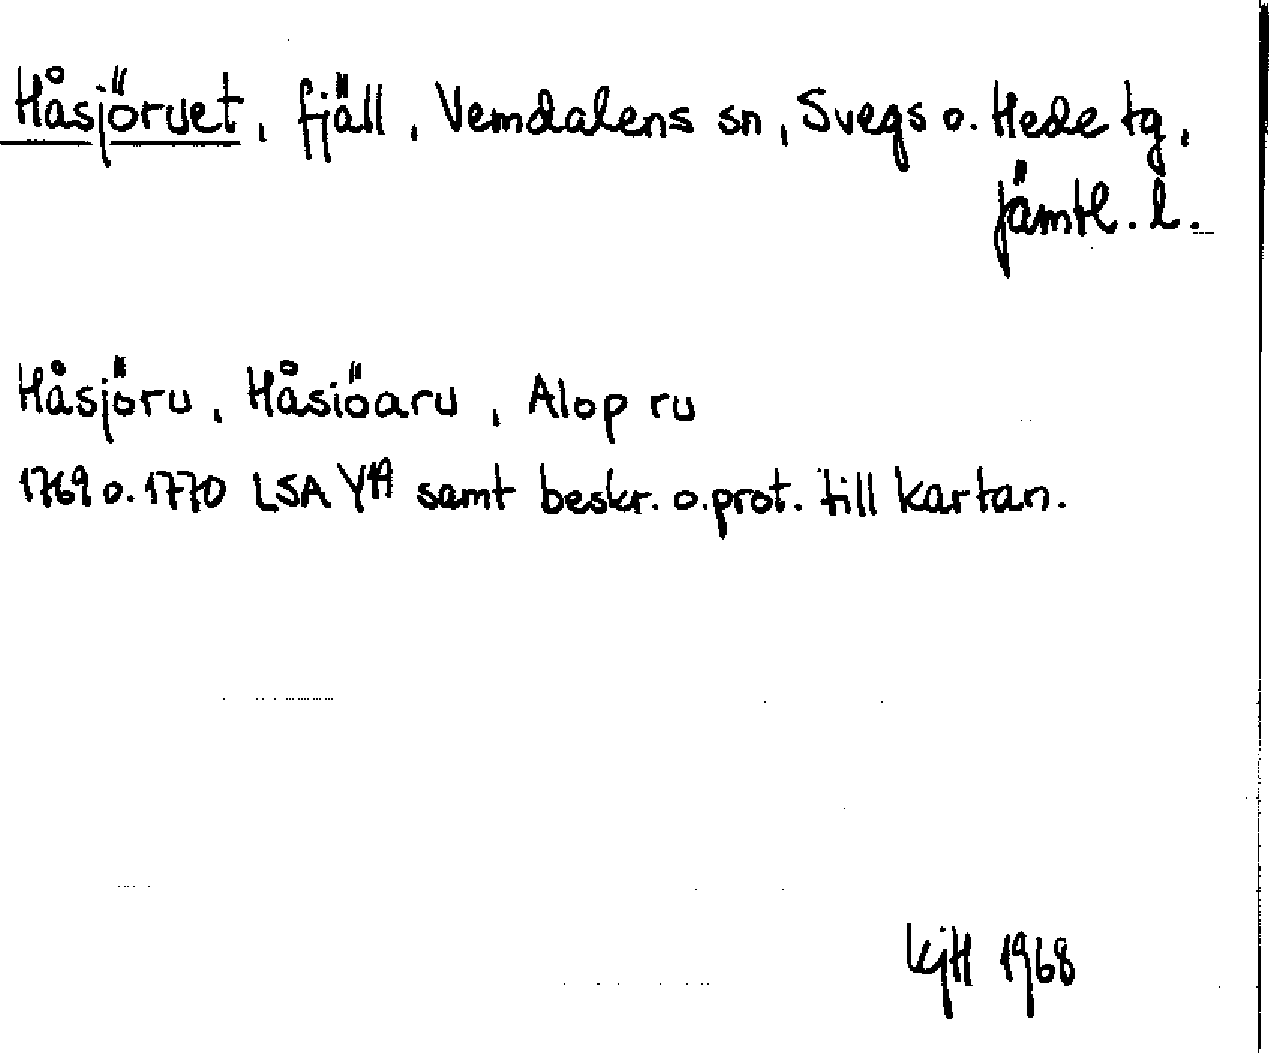 Håsjöruet, fjäll, Vemdalens sn, Svegs o. Hede tg,
Jämtl. l.
Håsjöru, Håsiöaru, Alop ru
1769 o. 1770 LSA Y19 samt beskr. o. prot. till kartan.
KjH 1968